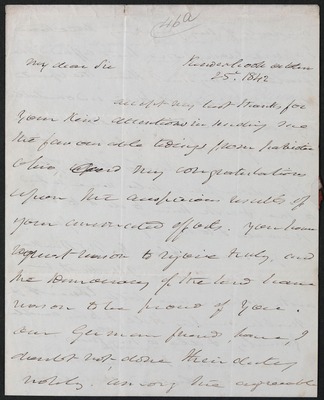 46a
My dear Sir
Kinderhook
25t. 1842
accept my best thanks for
your kind attentions in sending me
the favourable tidings from
Ohio, and my congratulations
upon the auspicious results of
your efforts. You have
great reason to rejoice truly, and
the Democracy of the land have
reason to be proud of you.
Our German friends, have, I
doubt not, done their duty
nobly. Among the agreeable